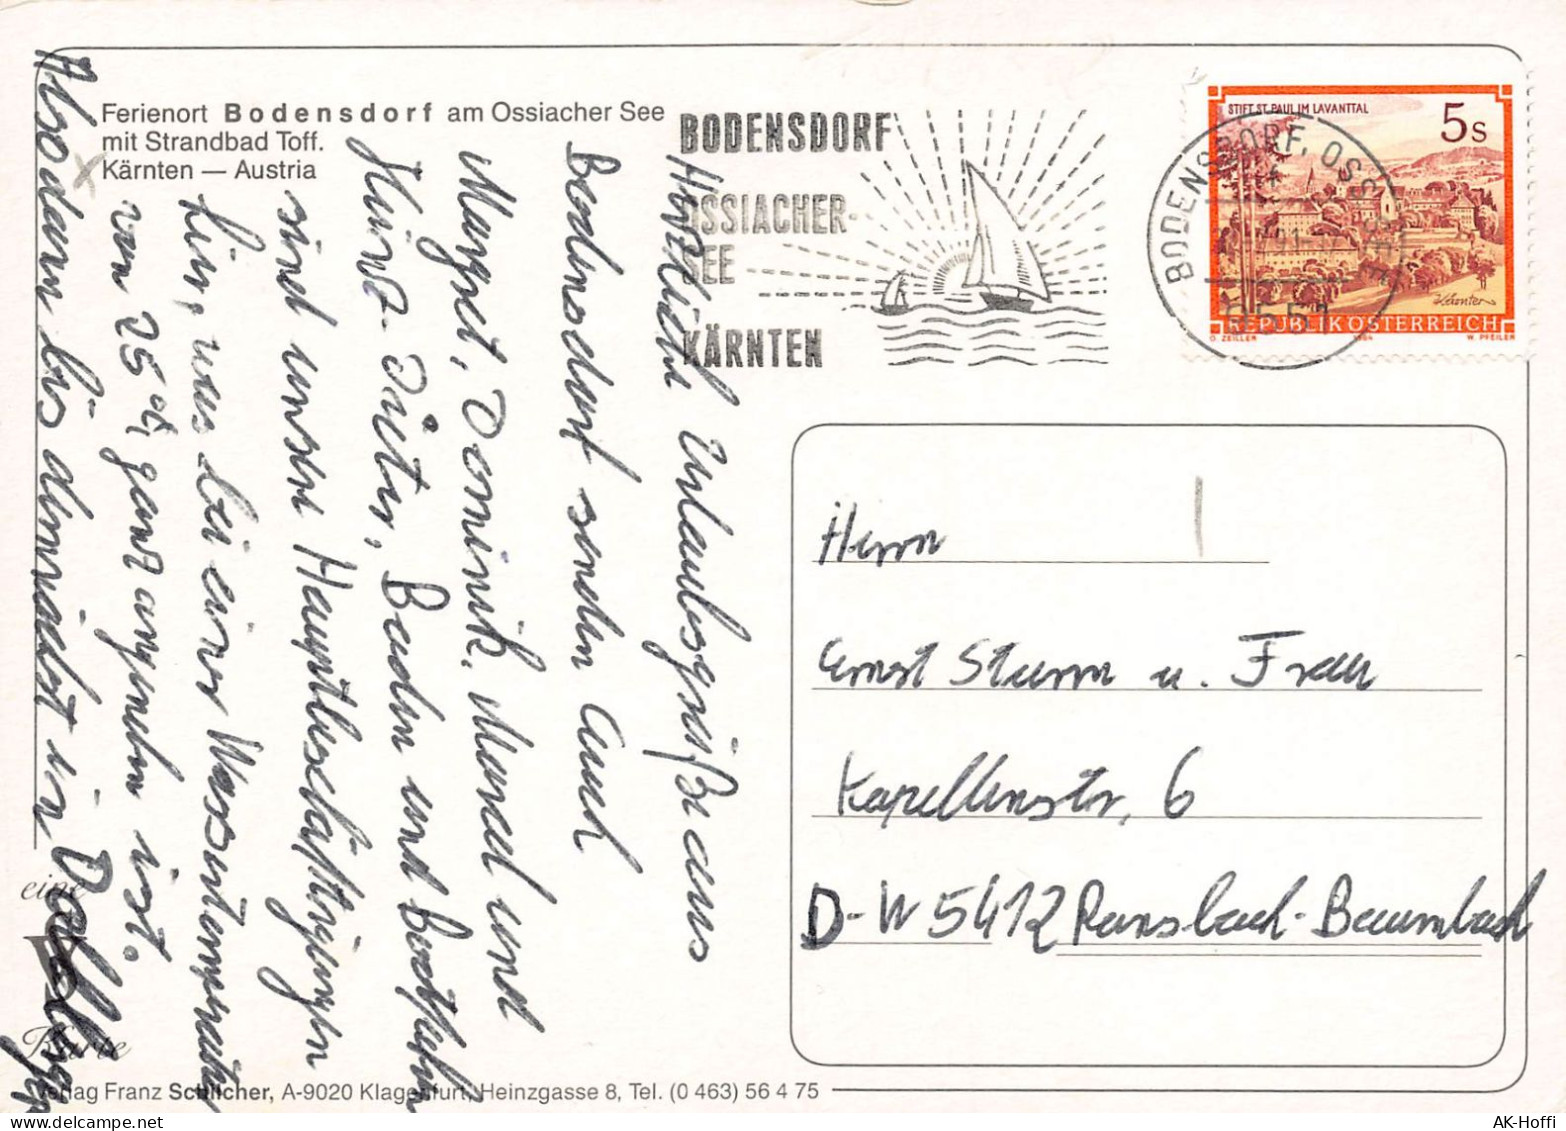 Ferienort Bodensdorf am Ossiacher See
mit Strandbad Toff.
Kärnten — Austria
BODENSDORF
OSSIACHER-
SEE
KÄRNTEN
STIFT ST. PAUL IM LAVANTTAL
5 S
REPUBLIK ÖSTERREICH
O. ZEILLER 1984 W. PFEILER
BODENSDORF, OSS
9551
Herzliche Urlaubsgrüße aus
Bodensdorf senden Euch
Margret, Dominik, Marcel und
Heinz-Dieter, Baden und Bootfahren
sind unsere Hauptbeschäftigungen
hier, was bei einer Wassertemperatur
von 25° ganz angenehm ist.
Also dann bis demnächst in
Herrn
Ernst Sturm u. Frau
Kapellenstr. 6
D-W 5412 Ransbach-Baumbach
eine
Karte
Verlag Franz Schilcher, A-9020 Klagenfurt, Heinzgasse 8, Tel. (0 463) 56 4 75
AK-Hoffi